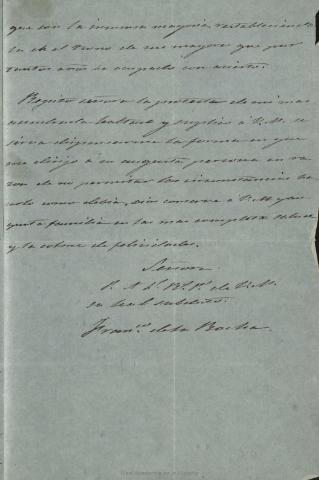 que con la inmensa mayoria restableciendo
en el trono de sus mayores que por
tantos años ha ocupado con acierto.
Repito señora la protesta de mi mas
acendrada lealtad y suplico á V. M. se
sirva dispensarme la forma en que
me dirijo á su augusta persona en ra
zon de no permitir las circunstancias ha
solo como debia, Dios conserve á V. M y au
gusta familia en la mas completa salud
y la colme de felicidades.
Señora
P. A L. R. P. de V. M.
su leal subdito.
Fran.co de la Rocha.
Real Academia de la Historia